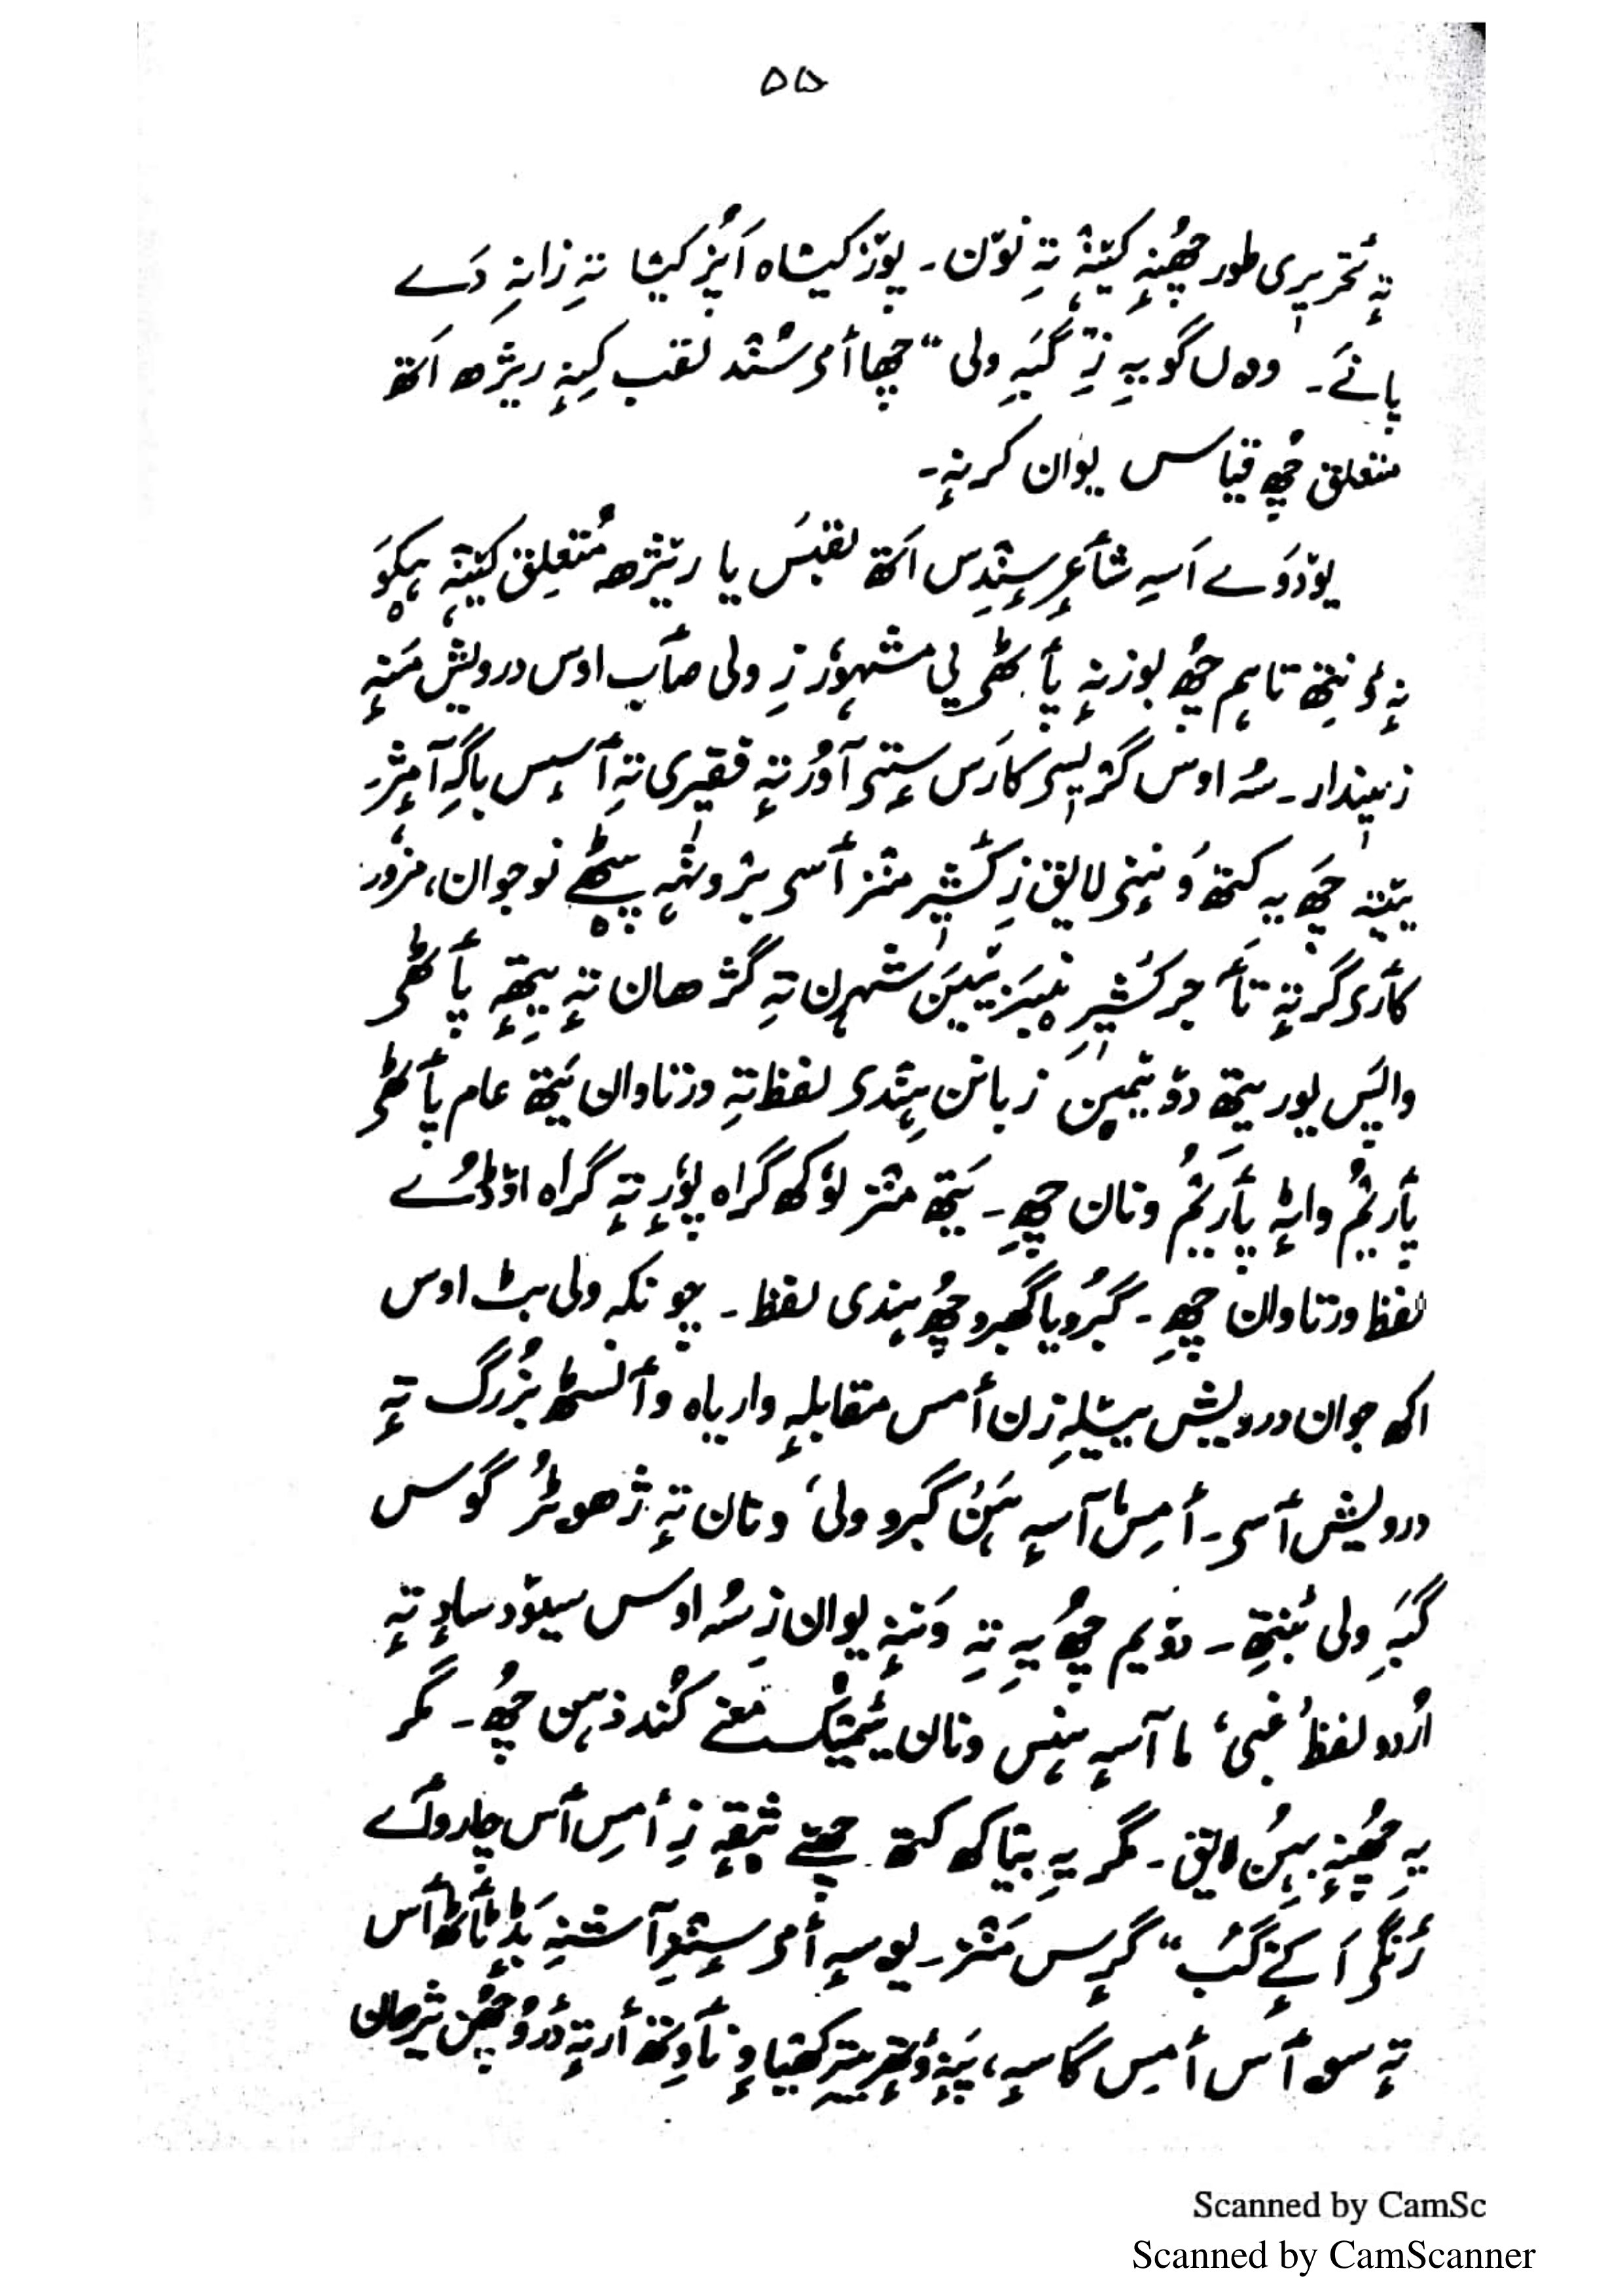 ۵۵
تہٕ تحریری طور چھُنہٕ کینٛہہ تہِ نوٚن۔ پوٚز کیشاہ اَپُز کیشا تہِ زانہِ دَے
پانَے۔ وہ ل گو یہِ زِ گبہِ ولی" چھا أمۍ سُنٛد لقب کِنہٕ ریژھ اَتھ
متعلق چھُ قیاس یوان کرنہٕ۔
یوٚدوَے اَسہِ شٲعِر سٕنٛدِس اَتھ لقبَس یا ریٚژھہِ مُتعلِق کینٛہہ ہیکوٚ
نہٕ وٕنِتھ تاہم چھُ بوزنہٕ پٲٹھۍ یی مشہوٗر زِ ولی صٲب اوس درویش مَنہٕ
زمیندار۔ سُہ اوس گرٛیسۍ کارَس سٕتۍ آوُر تہٕ فقیری تہِ أسٕس باگہِ آمٕژ۔
ییٚتہِ چھَ یہ کتھ وَننۍ لایق زِ کٔشیرِ منٛز أسۍ برٛونٛہہ سٮ۪ٹھے نوجوان، مزوٗر
کٲرۍ گر تہٕ تٲجر کٔشیرِ نیبَر یٔمیَن شہرن تہِ گژھان تہٕ یِتھہٕ پٲٹھۍ
واپس یور یتھ دوٚیمین زبانن ہٕنٛدۍ لفظ تہِ ورتاوان یَتھ عام پٲٹھۍ
پٲرِیُم وانہٕ پٲرِیُم ونان چھِ۔ یَتھ منٛز لۄکھ گراہ پوٗرِ تہٕ گراہ اوٚڈُے
لفظ ورتاوان چھِ۔ گبرُو یا گھبرو چھُ ہندی لفظ۔ چونکہ ولی بٹ اوس
اکھ جوان درویش ییٚلہِ زن أمس مقابلہٕ واریاہ وٲنسٕٹھ بُزرگ تہٕ
درویش أسۍ۔ أمِس آسہِ ہَن گبرو ولی، ونان تہٕ ژھوٚٹُر گوس
گبہِ ولی بَنِتھ۔ دوٚیم چھُ یہِ تہِ وَننہٕ یوان زِ سُہ اوس سیوٚد سادٕ تہٕ
اُردو لفظ 'غبی' ما آسہِ ہنس ونان یٔمیُک معنے کُند ذہن چھُ۔ مگر
یہِ چھُنہٕ بہن لایق۔ مگر یہِ بیاکھ کتھ چھے ثیقہٕ زِ أمِس أس چارواے
رٔنگۍ اَکے گَب" گرِس منٛز۔ یوسہِ أمۍ سٕنٛزِ آشنہِ بَڈٕ ٹاٹھ أس
تہٕ سۄ أس أمِس گاسہٕ،
Scanned by CamSc
Scanned by CamScanner